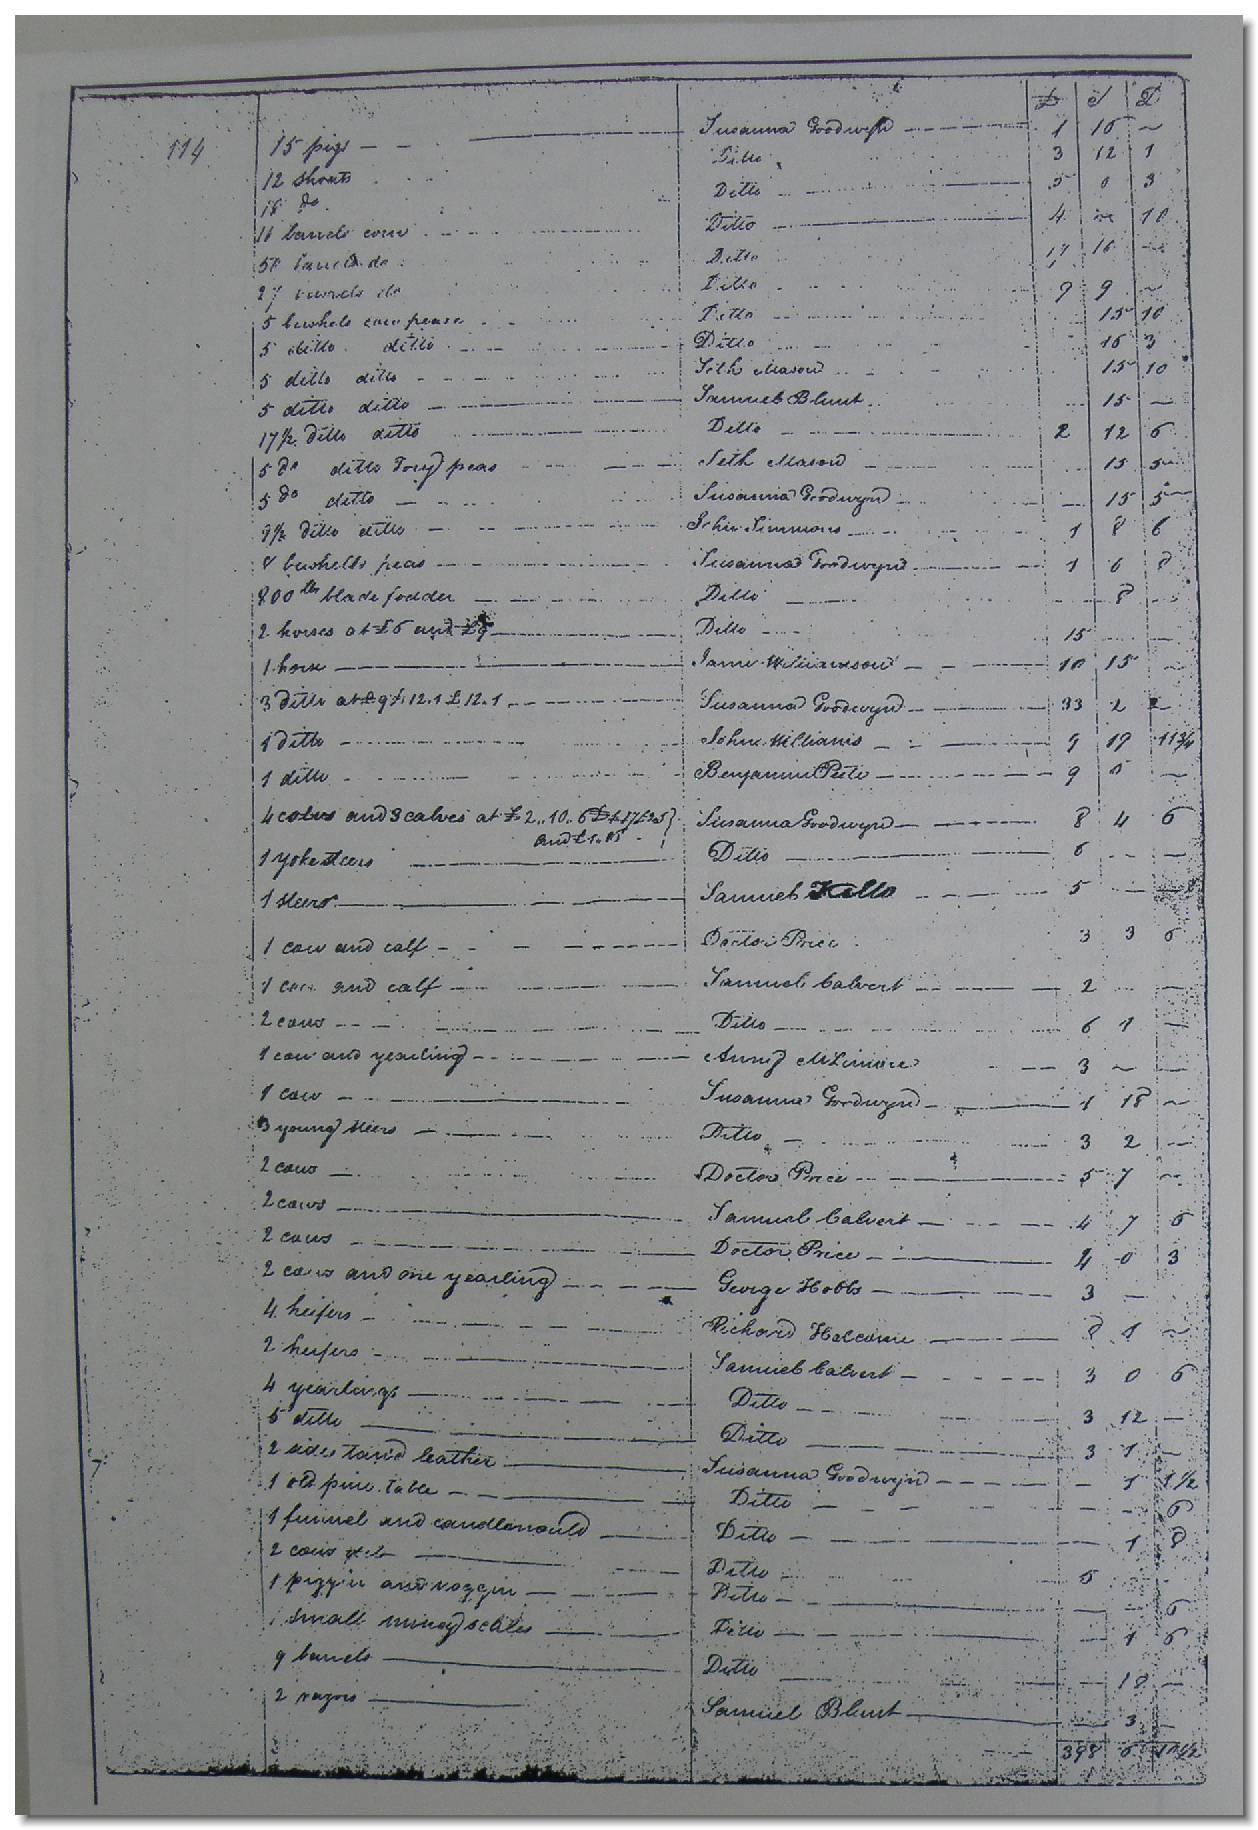 £ S D
114 15 pigs Susanna Goodwyn 1 16 ~
12 shoats Ditto 3 12 1
18 do Ditto 5 0 3
16 barrels corn Ditto 4 10
50 barrels do Ditto 17 10
27 barrels do Ditto 9 9 ~
5 bushels cow pease Ditto 15 10
5 ditto ditto Ditto 16 3
5 ditto ditto Seth Mason 15 10
5 ditto ditto Samuel Blunt 15 —
17½ ditto ditto Ditto 2 12 6
5 do ditto Tory peas Seth Mason 15 5
5 do ditto Susanna Goodwyn 15 5
9½ ditto ditto John Simmons 1 8 6
8 bushells peas Susanna Goodwyn 1 6 8
800 lbs blade fodder Ditto 8
2 horses at £6 and £9 Ditto 15
1 horse Williamson 10 15 ~
3 ditto at £9 £12.1 £12.1 Susanna Goodwyn 33 2
1 ditto John Williams 9 19 11¾
1 ditto Benjamin Peete 9 5 —
4 cows and 3 calves at £2..10..6 Susanna Goodwyn 8 4 6
and £1..
1 yoke steers Ditto 6 — —
1 steers Samuel Kello 5
1 cow and calf Doctor Price 3 3 6
1 cow and calf Samuel Calvert 2 —
2 cows Ditto 6 1 —
1 cow and yearling 3 ~ —
1 cow Susanna Goodwyn 1 18 ~
3 young steers Ditto 3 2 —
2 cows Doctor Price 5 7 ~
2 cows Samuel Calvert 4 7 6
2 cows Doctor Price 4 0 3
2 cows and one yearling George Hobbs 3 —
4 heifers Richard 8 1 ~
2 heifers Samuel Calvert 3 0 6
4 yearlings Ditto 3 12 —
5 ditto Ditto 3 1 —
2 sides tan'd leather Susanna Goodwyn — 1 1½
1 old pine table Ditto 6
1 funnel and candlemould Ditto 1 8
2 cows Ditto 6
1 piggin and noggin Ditto 6
1 small money scales Ditto 1 6
9 barrels Ditto 18 —
2 razors Samuel Blunt 3 —
398 6 10½